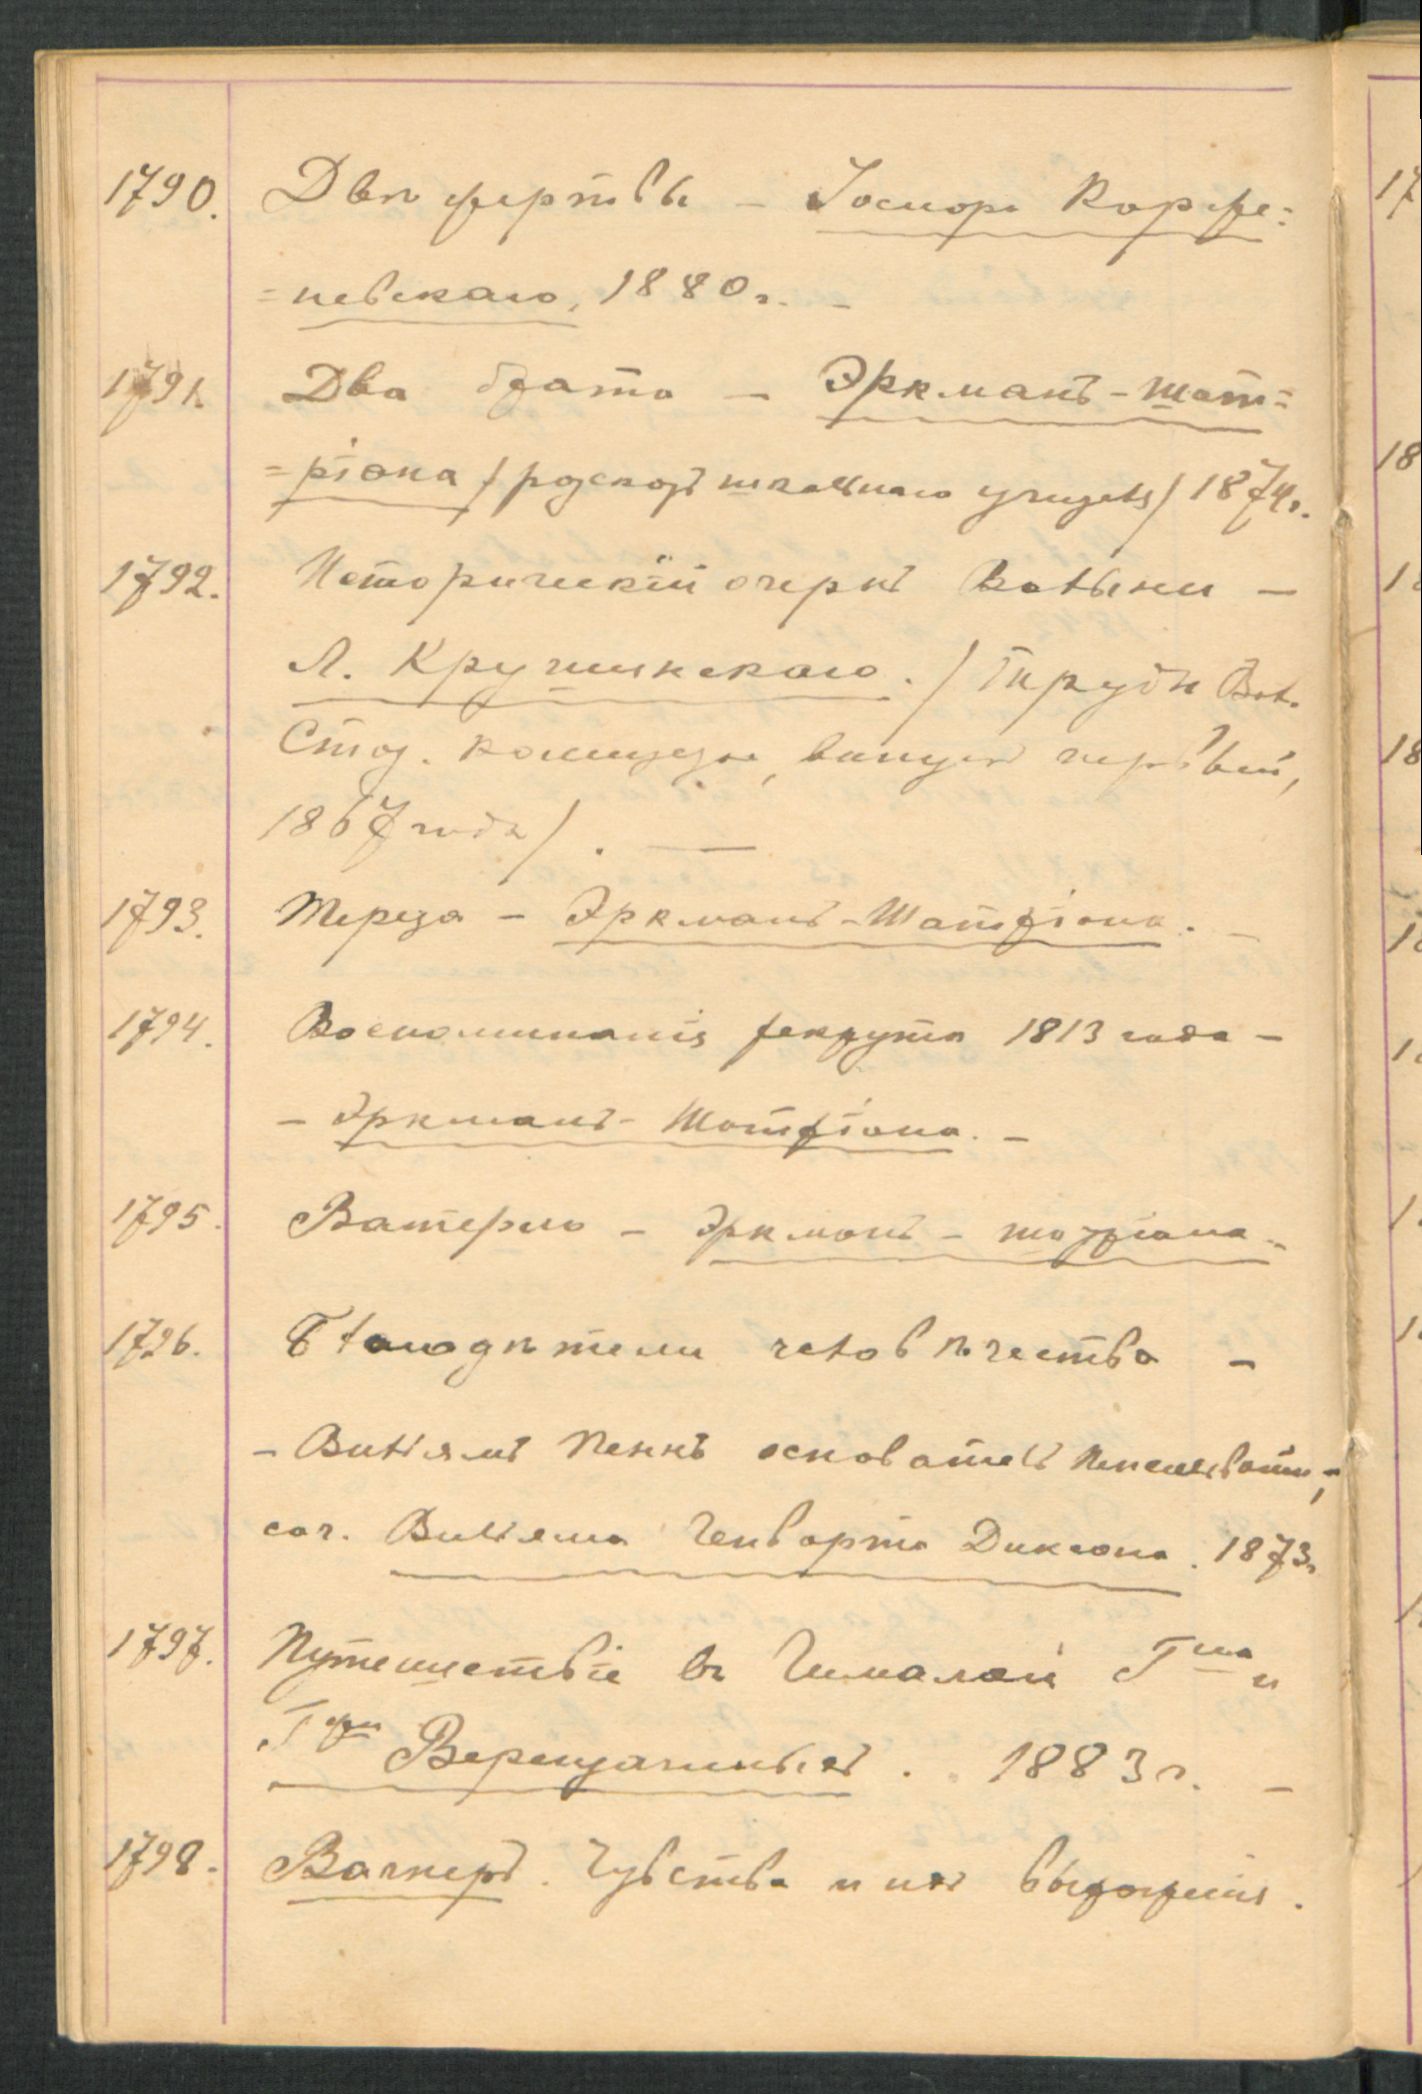 1790. Двѣ жертвы – Іосифа Корже=
=невскаго, 1880г. –
1791. Два брата – Эркманъ-Шат=
=ріана /разсказъ школьнаго учителя/ 1874г.
1792. Историческій очеркъ Волыни –
Л. Крушинскаго. /Труды Вол.
Стат. комитета, выпускъ первый,
1867 года/. —
1793. Тереза – Эркманъ-Шатріана. –
1794. Воспоминанія рекрута 1813 года –
– Эркманъ-Шатріана. –
1795. Ватерло – Эркманъ-Шатріана.
1796. Благодѣтели человѣчества –
– Вильямъ Пеннъ основатель Пенсильваніи,
соч. Вильяма Гепворта Диксона. 1873г.
1797. Путешествіе въ Гималаи Г–на и
Г–жи Верещагиныхъ. 1883г. –
1798. Вагнеръ. Чувства и ихъ выраженія.
17
18
18